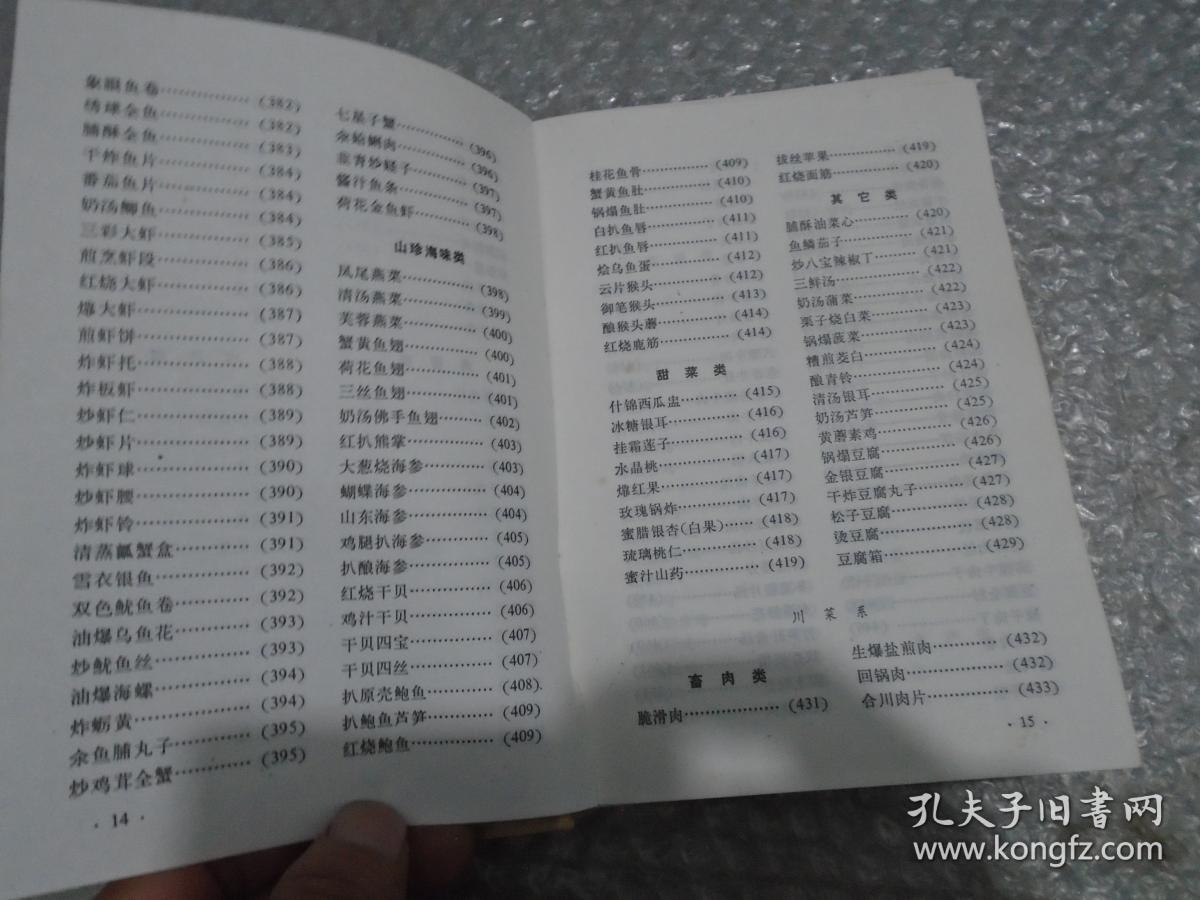 象眼鱼卷……………(382)
绣球全鱼……………(382)
脯酥全鱼……………(383)
干炸鱼片……………(384)
番茄鱼片……………(384)
奶汤鲫鱼……………(384)
三彩大虾……………(385)
煎烹虾段……………(386)
红烧大虾……………(386)
㸆大虾……………(387)
煎虾饼……………(387)
炸虾托……………(388)
炸板虾……………(388)
炒虾仁……………(389)
炒虾片……………(389)
炸虾球……………(390)
炒虾腰……………(390)
炸虾铃……………(391)
清蒸瓤蟹盒…………(391)
雪衣银鱼……………(392)
双色鱿鱼卷…………(392)
油爆乌鱼花…………(393)
炒鱿鱼丝……………(393)
油爆海螺……………(394)
炸蛎黄……………(394)
汆鱼脯丸子…………(395)
炒鸡茸全蟹…………(395)
· 14 ·
七星子蟹……………(396)
汆蛤蜊肉……………(396)
韭青炒蛏子…………(397)
酱汁鱼条……………(397)
荷花金鱼虾…………(398)
山珍海味类
凤尾燕菜……………(398)
清汤燕菜……………(399)
芙蓉燕菜……………(400)
蟹黄鱼翅……………(400)
荷花鱼翅……………(401)
三丝鱼翅……………(401)
奶汤佛手鱼翅………(402)
红扒熊掌……………(403)
大葱烧海参…………(403)
蝴蝶海参……………(404)
山东海参……………(404)
鸡腿扒海参…………(405)
扒酿海参……………(405)
红烧干贝……………(406)
鸡汁干贝……………(406)
干贝四宝……………(407)
干贝四丝……………(407)
扒原壳鲍鱼…………(408)
扒鲍鱼芦笋…………(409)
红烧鲍鱼……………(409)
桂花鱼骨……………(409)
蟹黄鱼肚……………(410)
锅塌鱼肚……………(410)
白扒鱼唇……………(411)
红扒鱼唇……………(411)
烩乌鱼蛋……………(412)
云片猴头……………(412)
御笔猴头……………(413)
酿猴头蘑……………(414)
红烧鹿筋……………(414)
甜菜类
什锦西瓜盅…………(415)
冰糖银耳……………(416)
挂霜莲子……………(416)
水晶桃……………(417)
㸆红果……………(417)
玫瑰锅炸……………(417)
蜜腊银杏(白果)……(418)
琉璃桃仁……………(418)
蜜汁山药……………(419)
拔丝苹果……………(419)
红烧面筋……………(420)
其它类
脯酥油菜心…………(420)
鱼鳞茄子……………(421)
炒八宝辣椒丁………(421)
三鲜汤……………(422)
奶汤蒲菜……………(422)
栗子烧白菜…………(423)
锅塌菠菜……………(423)
糟煎茭白……………(424)
酿青铃……………(424)
清汤银耳……………(425)
奶汤芦笋……………(425)
黄蘑素鸡……………(426)
锅塌豆腐……………(426)
金银豆腐……………(427)
干炸豆腐丸子………(427)
松子豆腐……………(428)
烫豆腐……………(428)
豆腐箱……………(429)
川菜系
畜肉类
脆滑肉……………(431)
生爆盐煎肉…………(432)
回锅肉……………(432)
合川肉片……………(433)
· 15 ·
孔夫子旧书网
www.kongfz.com